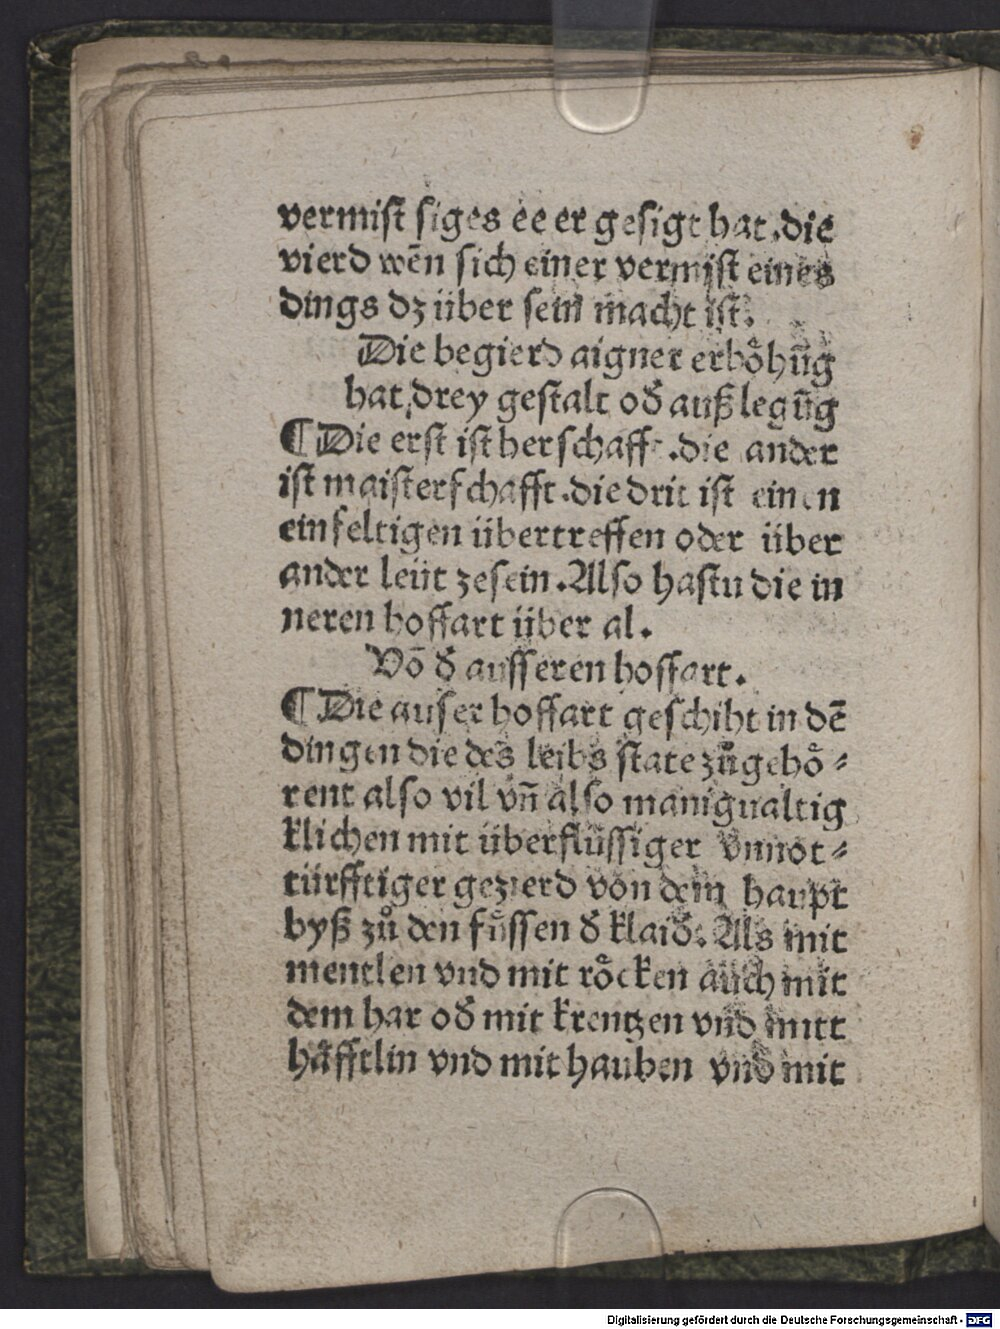 vermist siges ee er gesigt hat. die
vierd wēn sich einer vermist eines
dings dz über sein macht ist.
Die begierd aigner erhoͤhūg
hat drey gestalt od̄ auß legūg
¶ Die erst ist herschafft. die ander
ist maisterschafft. die drit ist einen
einfeltigen übertreffen oder über
ander leüt zesein. Also hastu die in
neren hoffart über al.
Vō d̄ ausseren hoffart.
¶ Die auser hoffart geschiht in dē
dingen die des leibs state zůgehoͤ⸗
rent also vil vn̄ also manigualtig
klichen mit überflüssiger vnnot⸗
türfftiger gezierd von dem haupt
byß zů den fuͤssen d̄ klaid. Als mit
mentlen vnd mit roͤcken auch mit
dem har od̄ mit krentzen vnd mitt
haͤfftlin vnd mit hauben vnd mit
Digitalisierung gefördert durch die Deutsche Forschungsgemeinschaft - DFG